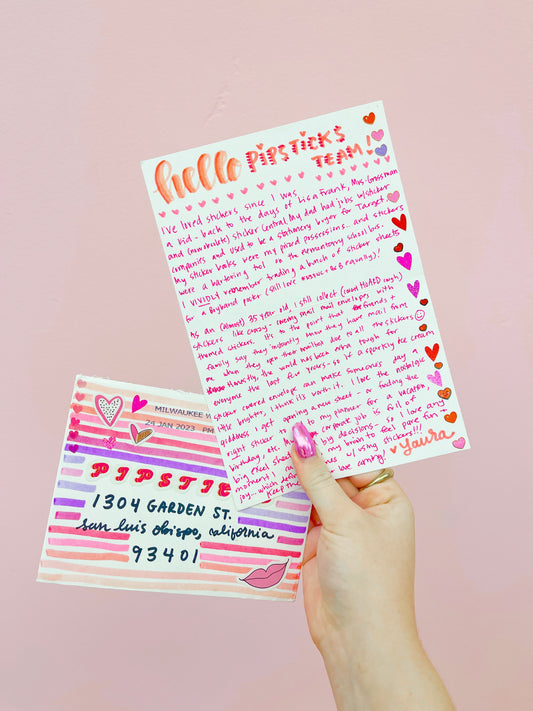 hello PIPSTICKS
TEAM!
I've loved stickers since I was
a kid - back to the days of Lisa Frank, Mrs. Grossman
and (now obsolete) Sticker Central. My dad had jobs w/ sticker
companies and used to be a stationery buyer for Target.
My sticker books were my prized possessions... and stickers
were a bartering tool on the elementary school bus.
I VIVIDLY remember trading a bunch of sticker sheets
for a Boyband poster (still love equally)!
As an (almost) 35 year old, I still collect (cough HOARD cough)
stickers like crazy - covering mail envelopes with
themed stickers. It's to the point that friends +
family say they instantly know they have mail from
me when they open their mailbox due to all the stickers
Honestly, the world has been extra tough for
everyone the last few years - so if a sparkly ice cream
sticker covered envelope can make someones day a
little brighter, I think it's worth it. I love the nostalgic
giddiness I get opening a new sheet - or finding the
right sticker to to my planner for a vacation,
birthday, etc. corporate job is full of
big excel sheets by decisions - so I love any
moment I my brain to feel pure fun +
joy... which of using stickers!!!
Keep the love coming!
Laura
MILWAUKEE W
24 JAN 2023 PM
PIPSTIC
1304 GARDEN ST.
san luis obispo, california
93401